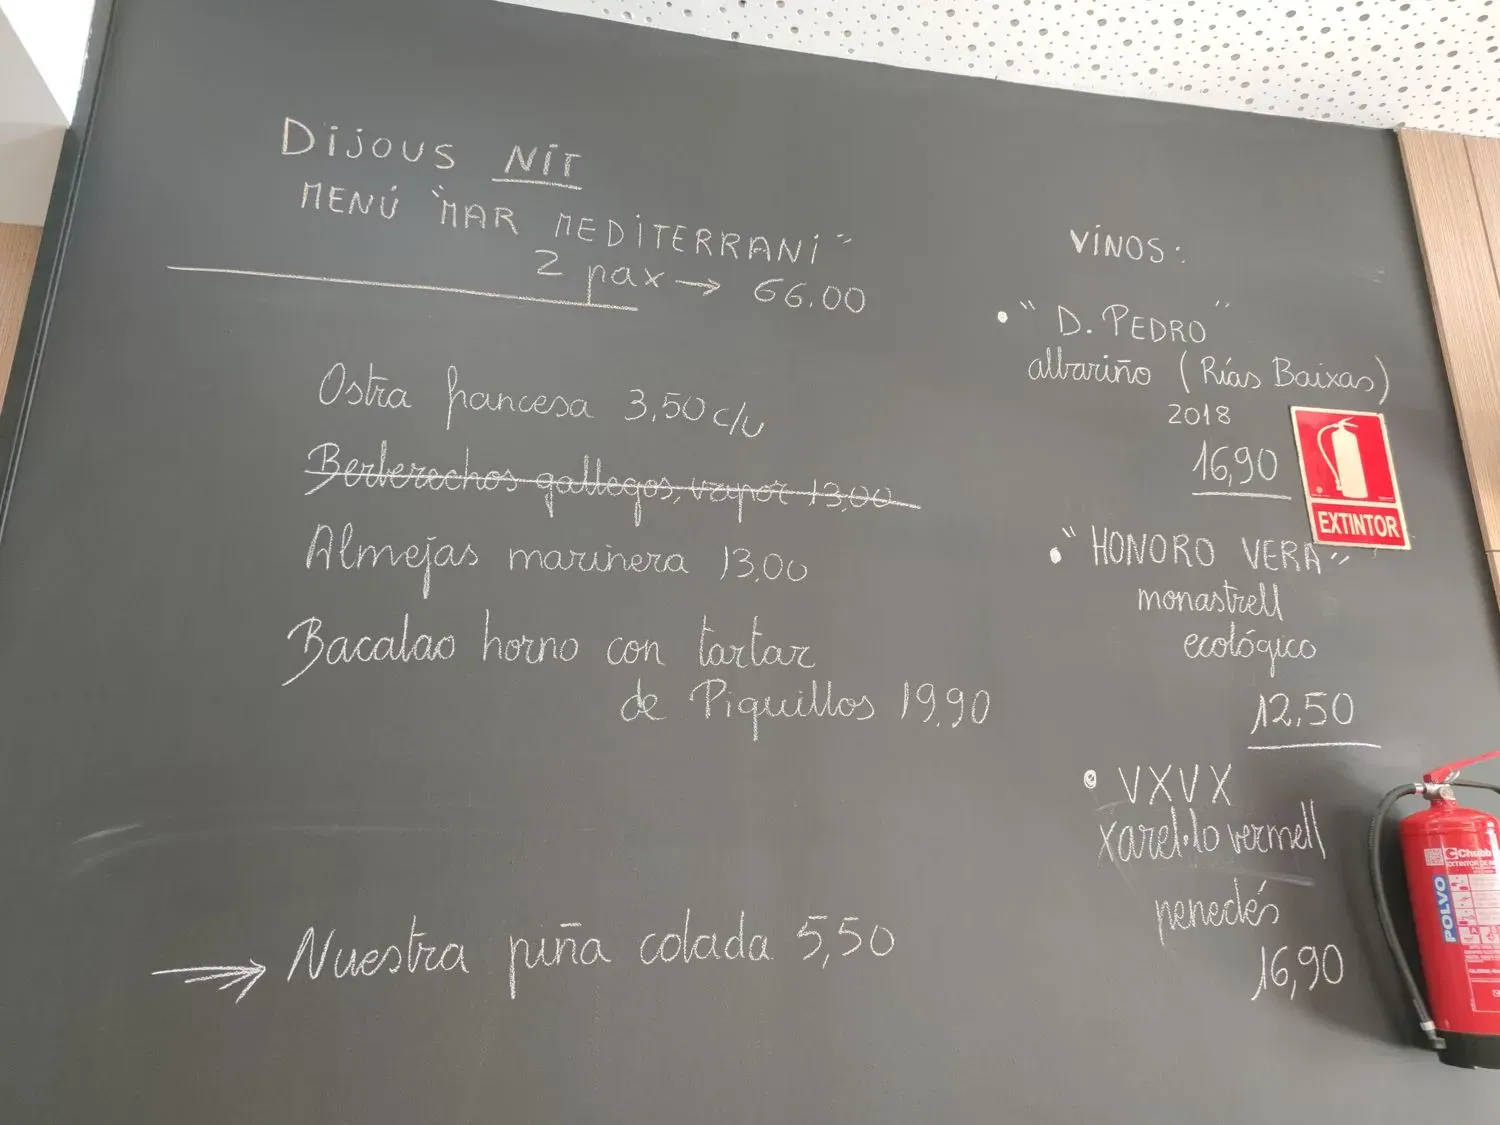 Dijous NIT
MENÚ "MAR MEDITERRANI"
2 pax → 66.00
Ostra francesa 3,50 c/u
Berberechos gallegos, vapor 13,00
Almejas marinera 13,00
Bacalao horno con tartar
de Piquillos 19,90
Nuestra piña colada 5,50
VINOS:
• "D. PEDRO"
albariño (Rías Baixas)
2018
16,90
• "HONORO VERA"
monastrell
ecológico
12,50
• VXVX
xarel·lo vermell
penedés
16,90
EXTINTOR
Chubb
POLVO